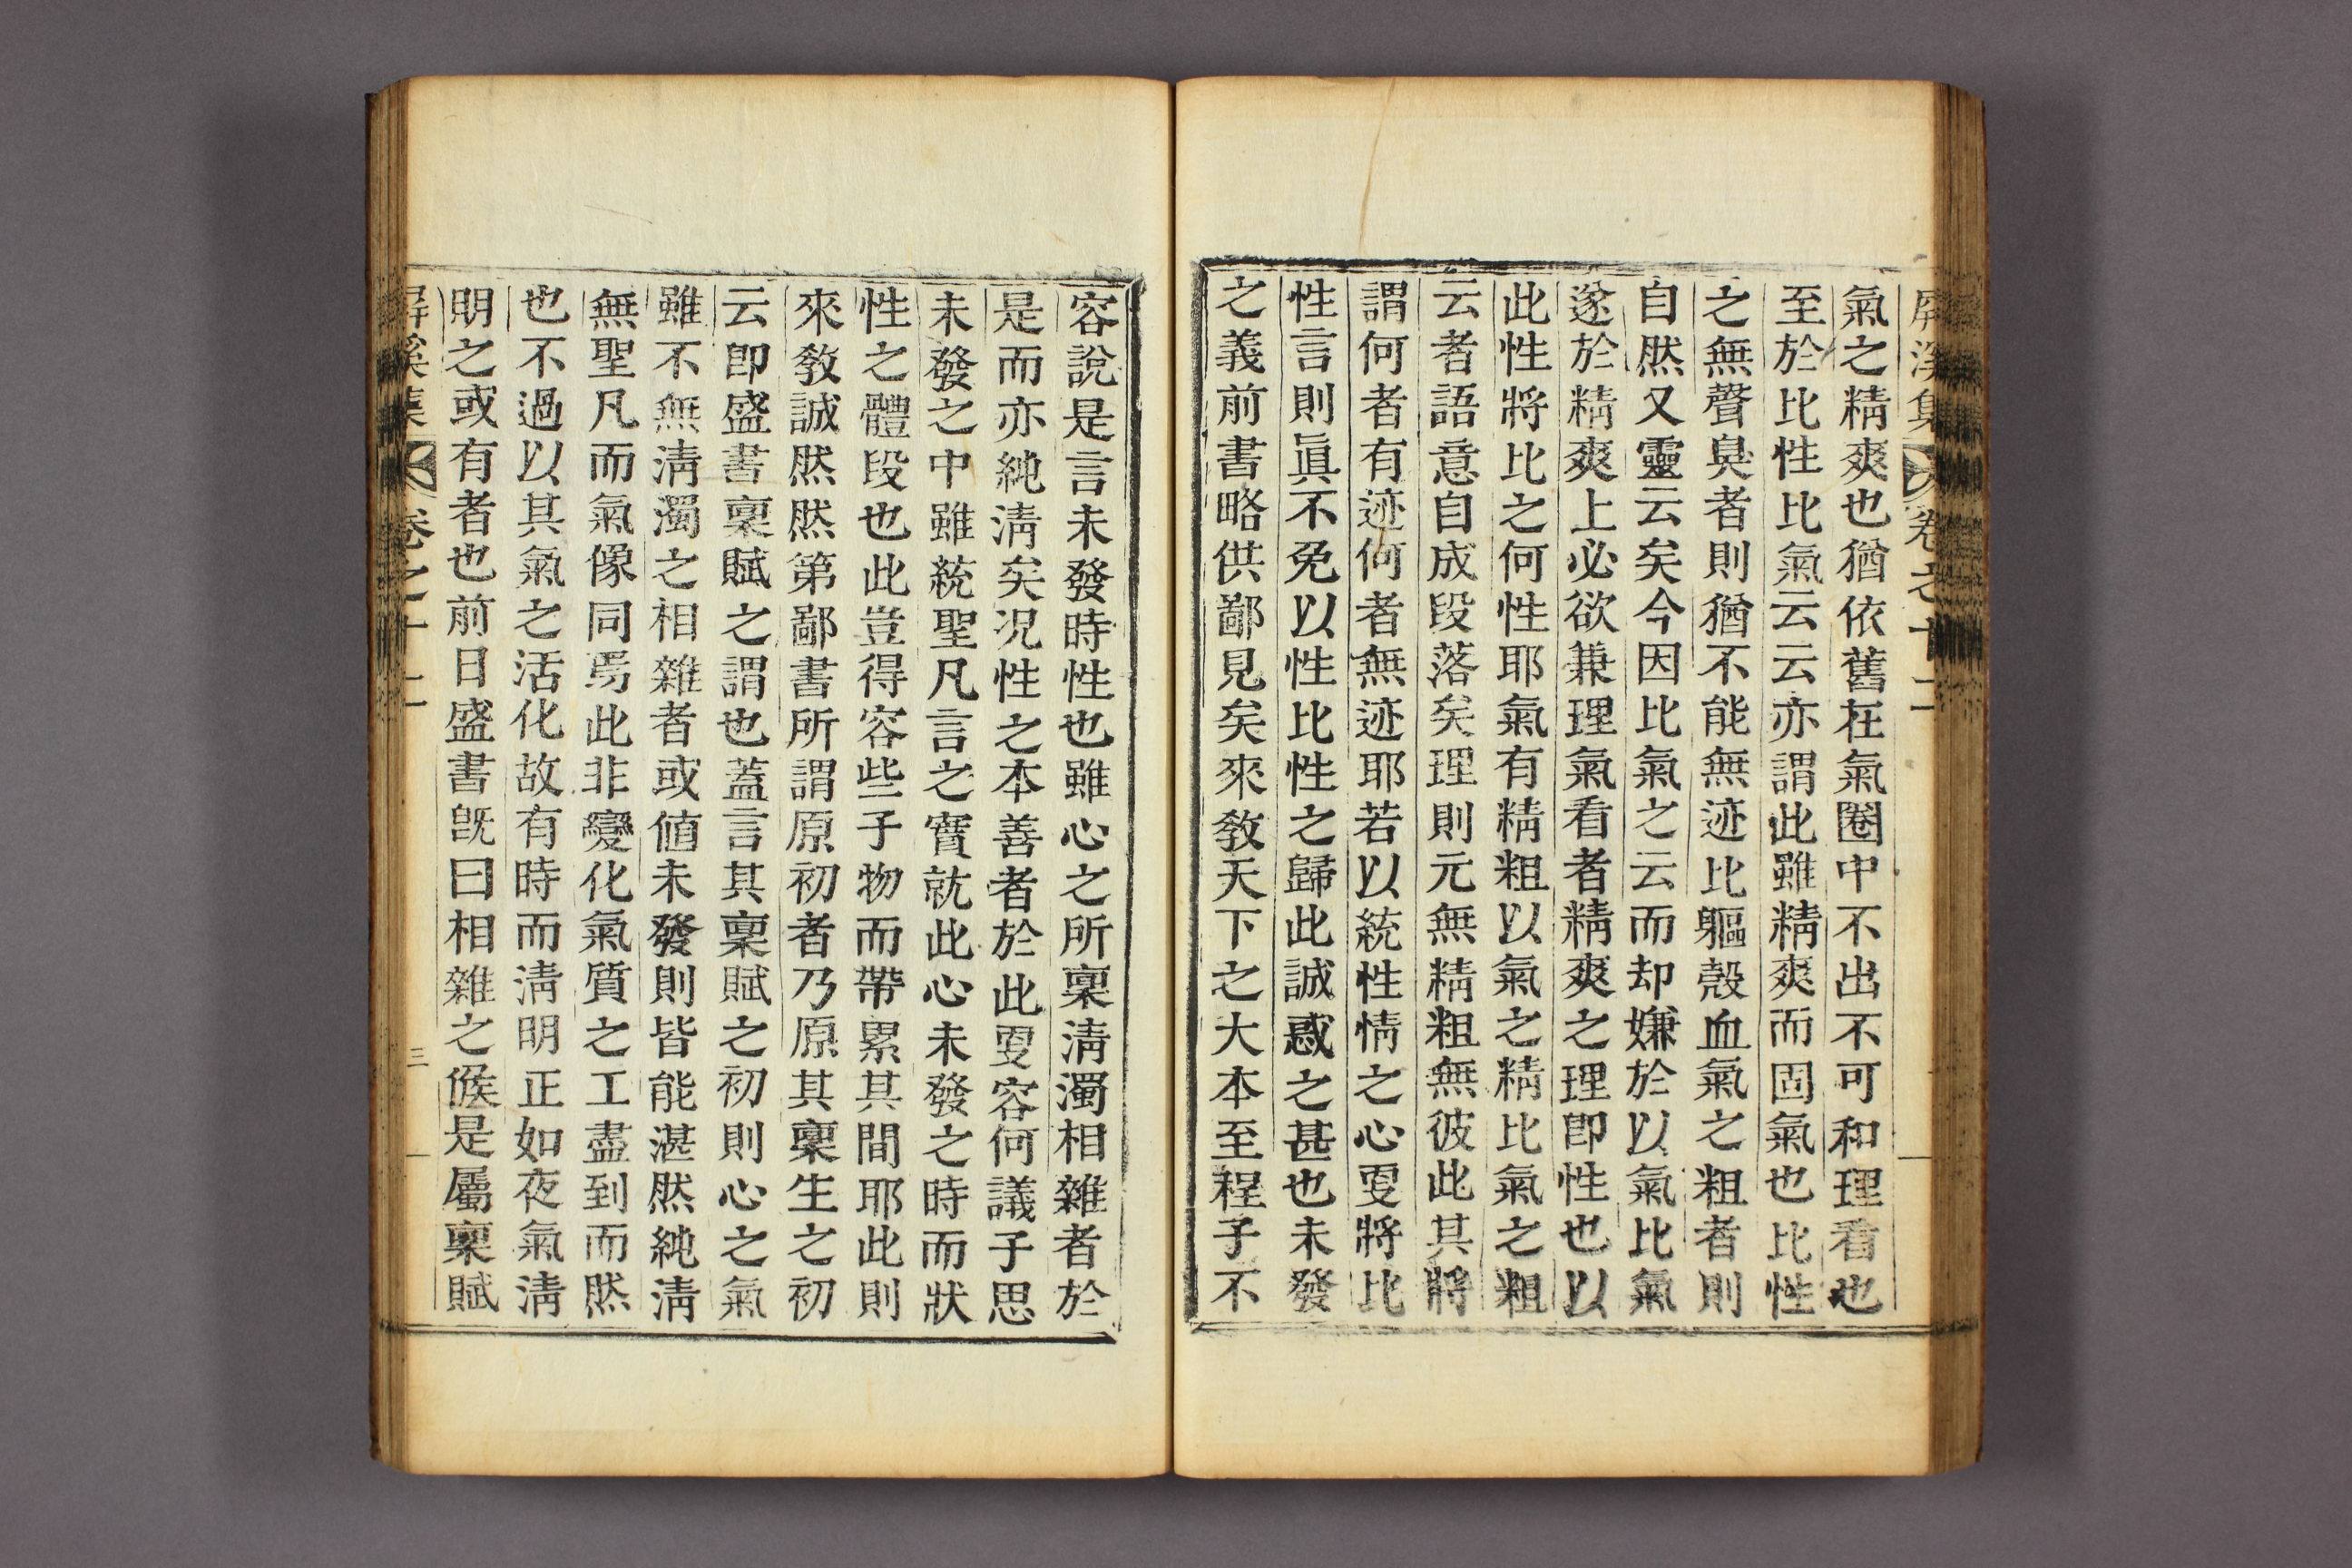 屏溪集 卷之十二
氣之精爽也猶依舊在氣圈中不出不可和理看也
至於比性比氣云云亦謂此雖精爽而固氣也比性
之無聲臭者則猶不能無迹比軀殼血氣之粗者則
自然又靈云矣今因比氣之云而却嫌於以氣比氣
遂於精爽上必欲兼理氣看者精爽之理卽性也以
此性將比之何性耶氣有精粗以氣之精比氣之粗
云者語意自成段落矣理則元無精粗無彼此其將
謂何者有迹何者無迹耶若以統性情之心更將比
性言則眞不免以性比性之歸此誠惑之甚也未發
之義前書略供鄙見矣來敎天下之大本至程子不
容說是言未發時性也雖心之所稟淸濁相雜者於
是而亦純淸矣況性之本善者於此更容何議子思
未發之中雖統聖凡言之實就此心未發之時而狀
性之體段也此豈得容些子物而帶累其間耶此則
來敎誠然然第鄙書所謂原初者乃原其稟生之初
云卽盛書稟賦之謂也蓋言其稟賦之初則心之氣
雖不無淸濁之相雜者或値未發則皆能湛然純淸
無聖凡而氣像同焉此非變化氣質之工盡到而然
也不過以其氣之活化故有時而淸明正如夜氣淸
明之或有者也前日盛書旣曰相雜之候是屬稟賦
屏溪集 卷之十二 三一